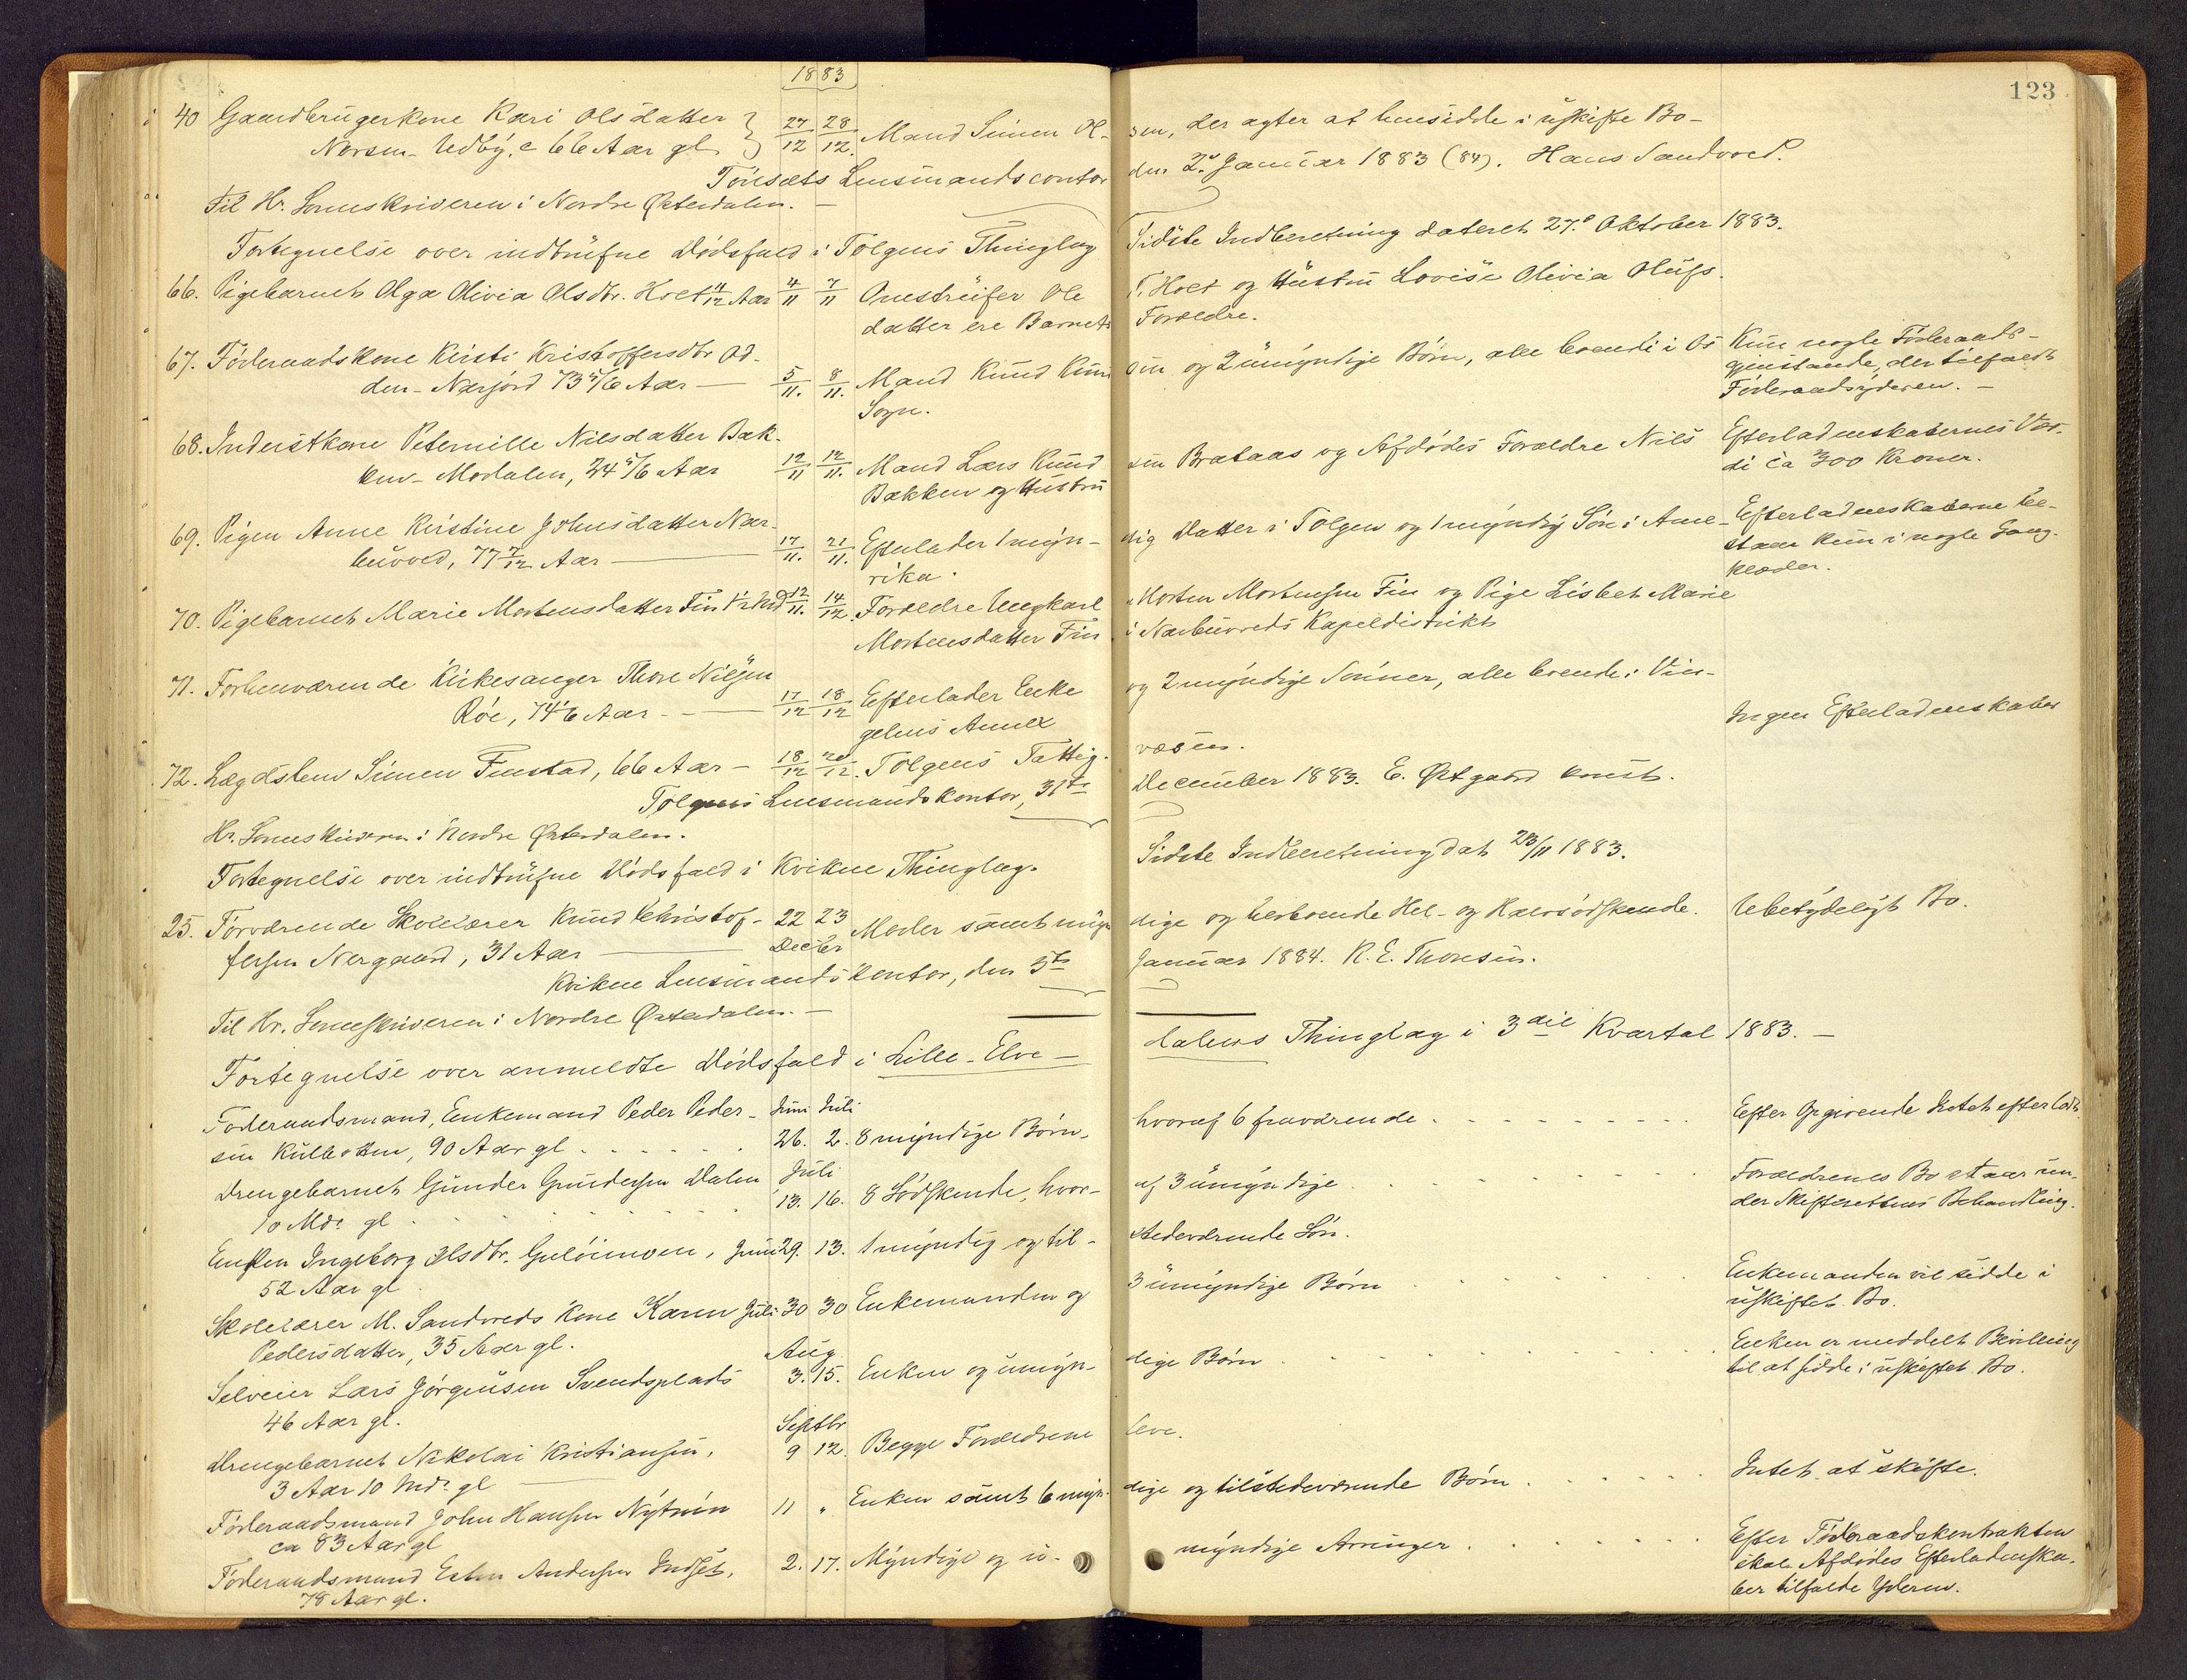 18 83
123
40 Gaardbrugerkone Kari Olsdatter 27/12 28/12. Mand Simen Ol- sen, der agter at hensidde i uskifte Bo-
Norsen-Udby, c 66 Aar gl.
Tönsets Lensmandscontor den 2. Januar 1883 (84). Hans Sandvold.
Til Hr. Sorenskriveren i Nordre Østerdalen.
Fortegnelse over indtrufne Dødsfald i Tolgens Thinglag Sidste Indberetning dateret 27.d Oktober 1883.
66. Pigebarnet Olga Olivia Olsdtr. Holt 4/12 Aar 4/11 7/11 Ole T. Holt og Hustru Lovise Olivia Olufs-
datter ere Barnets Forældre.
67. Föderaadskone Kirsti Kristoffersdtr Od-
den-Narjord 73 5/6 Aar — 5/11. 8/11. Mand Knud Knud sen og 2 umyndige Börn, alle boende i Os Kun nogle Föderaads-
Sogn. gjenstande, der tilfaldt
Föderaadsyderen. —
68. Inderstkone Peternille Nilsdatter Bak-
ken-Modalen, 24 5/6 Aar 12/11 12/11. Mand Lars Knud sen Brataas og Afdödes Forældre Nils Efterladenskabernes Vær-
Bakken og Hustru di ca 300 Kroner.
69. Pigen Anne Kirstine Johnsdatter Nar-
buvold, 77 7/12 Aar — 17/11. 21/11. Efterlader 1 myn- dig Datter i Tolgen og 1 myndig Sön i Ame- Efterladenskaberne be-
rika. staar kun i nogle Gang-
klæder.
70. Pigebarnet Marie Mortensdatter Fin 1/2 Md 12/11. 14/12. Forældre Ungkarl Morten Mortensen Fin og Pige Lisbet Marie
Mortensdatter Fin i Narbuvolds Kapeldistrikt
71. Forhenværende Kirkesanger Thore Nilsen
Röe, 74 1/6 Aar — 17/12 18/12 Efterlader Enke og 2 myndige Sönner, alle boende i Vin-
gelens Annex
Ingen Efterladenskaber
72. Lægdslem Simen Finstad, 66 Aar — 18/12 20/12. Tolgens Fattig- væsen.
Tolgens Lensmandskontor, 31te December 1883. E. Østgaard konst.
Hr. Sorenskriveren i Nordre Østerdalen.
Fortegnelse over indtrufne Dödsfald i Kvikne Thinglag. Sidste Indberetning dat 23/11 1883.
25. Forværende Skolelærer Knud Christof- 22 23 Moder samt myn dige og herboende Hel- og Halvsödskende. Ubetydeligt Bo.
fersen Nergaard, 31 Aar — Decbr
Kvikne Lensmandskontor, den 5te Januar 1884. R. E. Thoresen.
Til Hr. Sorenskriveren i Nordre Østerdalen. —
Fortegnelse over anmeldte Dödsfald i Lille-Elve- dalens Thinglag i 3die Kvartal 1883. —
Föderaadsmand, Enkemand Peder Peder- Juni Juli
sen Kulbotten, 90 Aar gl. 26. 2. 8 myndige Börn, hvoraf 6 fraværende Efter Opgivende Intet efterladt.
Drengebarnet Gunder Gundersen Dalen Juli
10 Mdr gl. 13. 16. 8 Södskende, hvor- af 3 umyndige Forældrenes Bo staar un-
der Skifterettens Behandling.
Enken Ingeborg Olsdtr. , Juni 29. 13. 1 myndig og til- stedeværende Sön.
52 Aar gl
Skolelærer M. Sandvolds Kone Karen Juli 30 30 Enkemanden og 3 umyndige Börn Enkemanden vil sidde i
Pedersdatter, 35 Aar gl. uskiftet Bo.
Selveier Lars Jörgensen Svendsplads Aug. 3. 15. Enken og umyn- dige Börn Enken er meddelt Bevilling
46 Aar gl. til at sidde i uskiftet Bo.
Drengebarnet Nikolai Kristiansen, Septbr 9 12. Begge Forældrene leve.
3 Aar 10 Mdr gl
Föderaadsmand John Hansen Nytrøen 11 " Enken samt 6 myn- dige og tilstedeværende Börn Intet at skifte.
ca 83 Aar gl
Föderaadsmand Esten Andersen Indset, 2. 17. Myndige og u- myndige Arvinger Efter Föderaadskontrakten
78 Aar gl. skal Afdödes Efterladenska-
ber tilfalde Yderen.